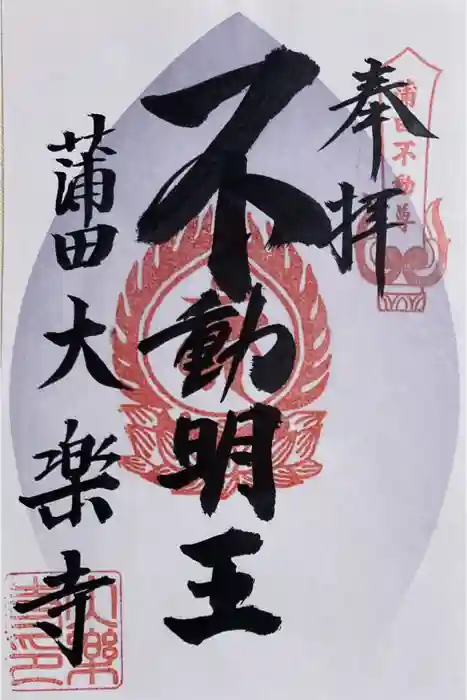 奉拝
蒲田不動尊
不動明王
蒲田大楽寺
大楽寺印